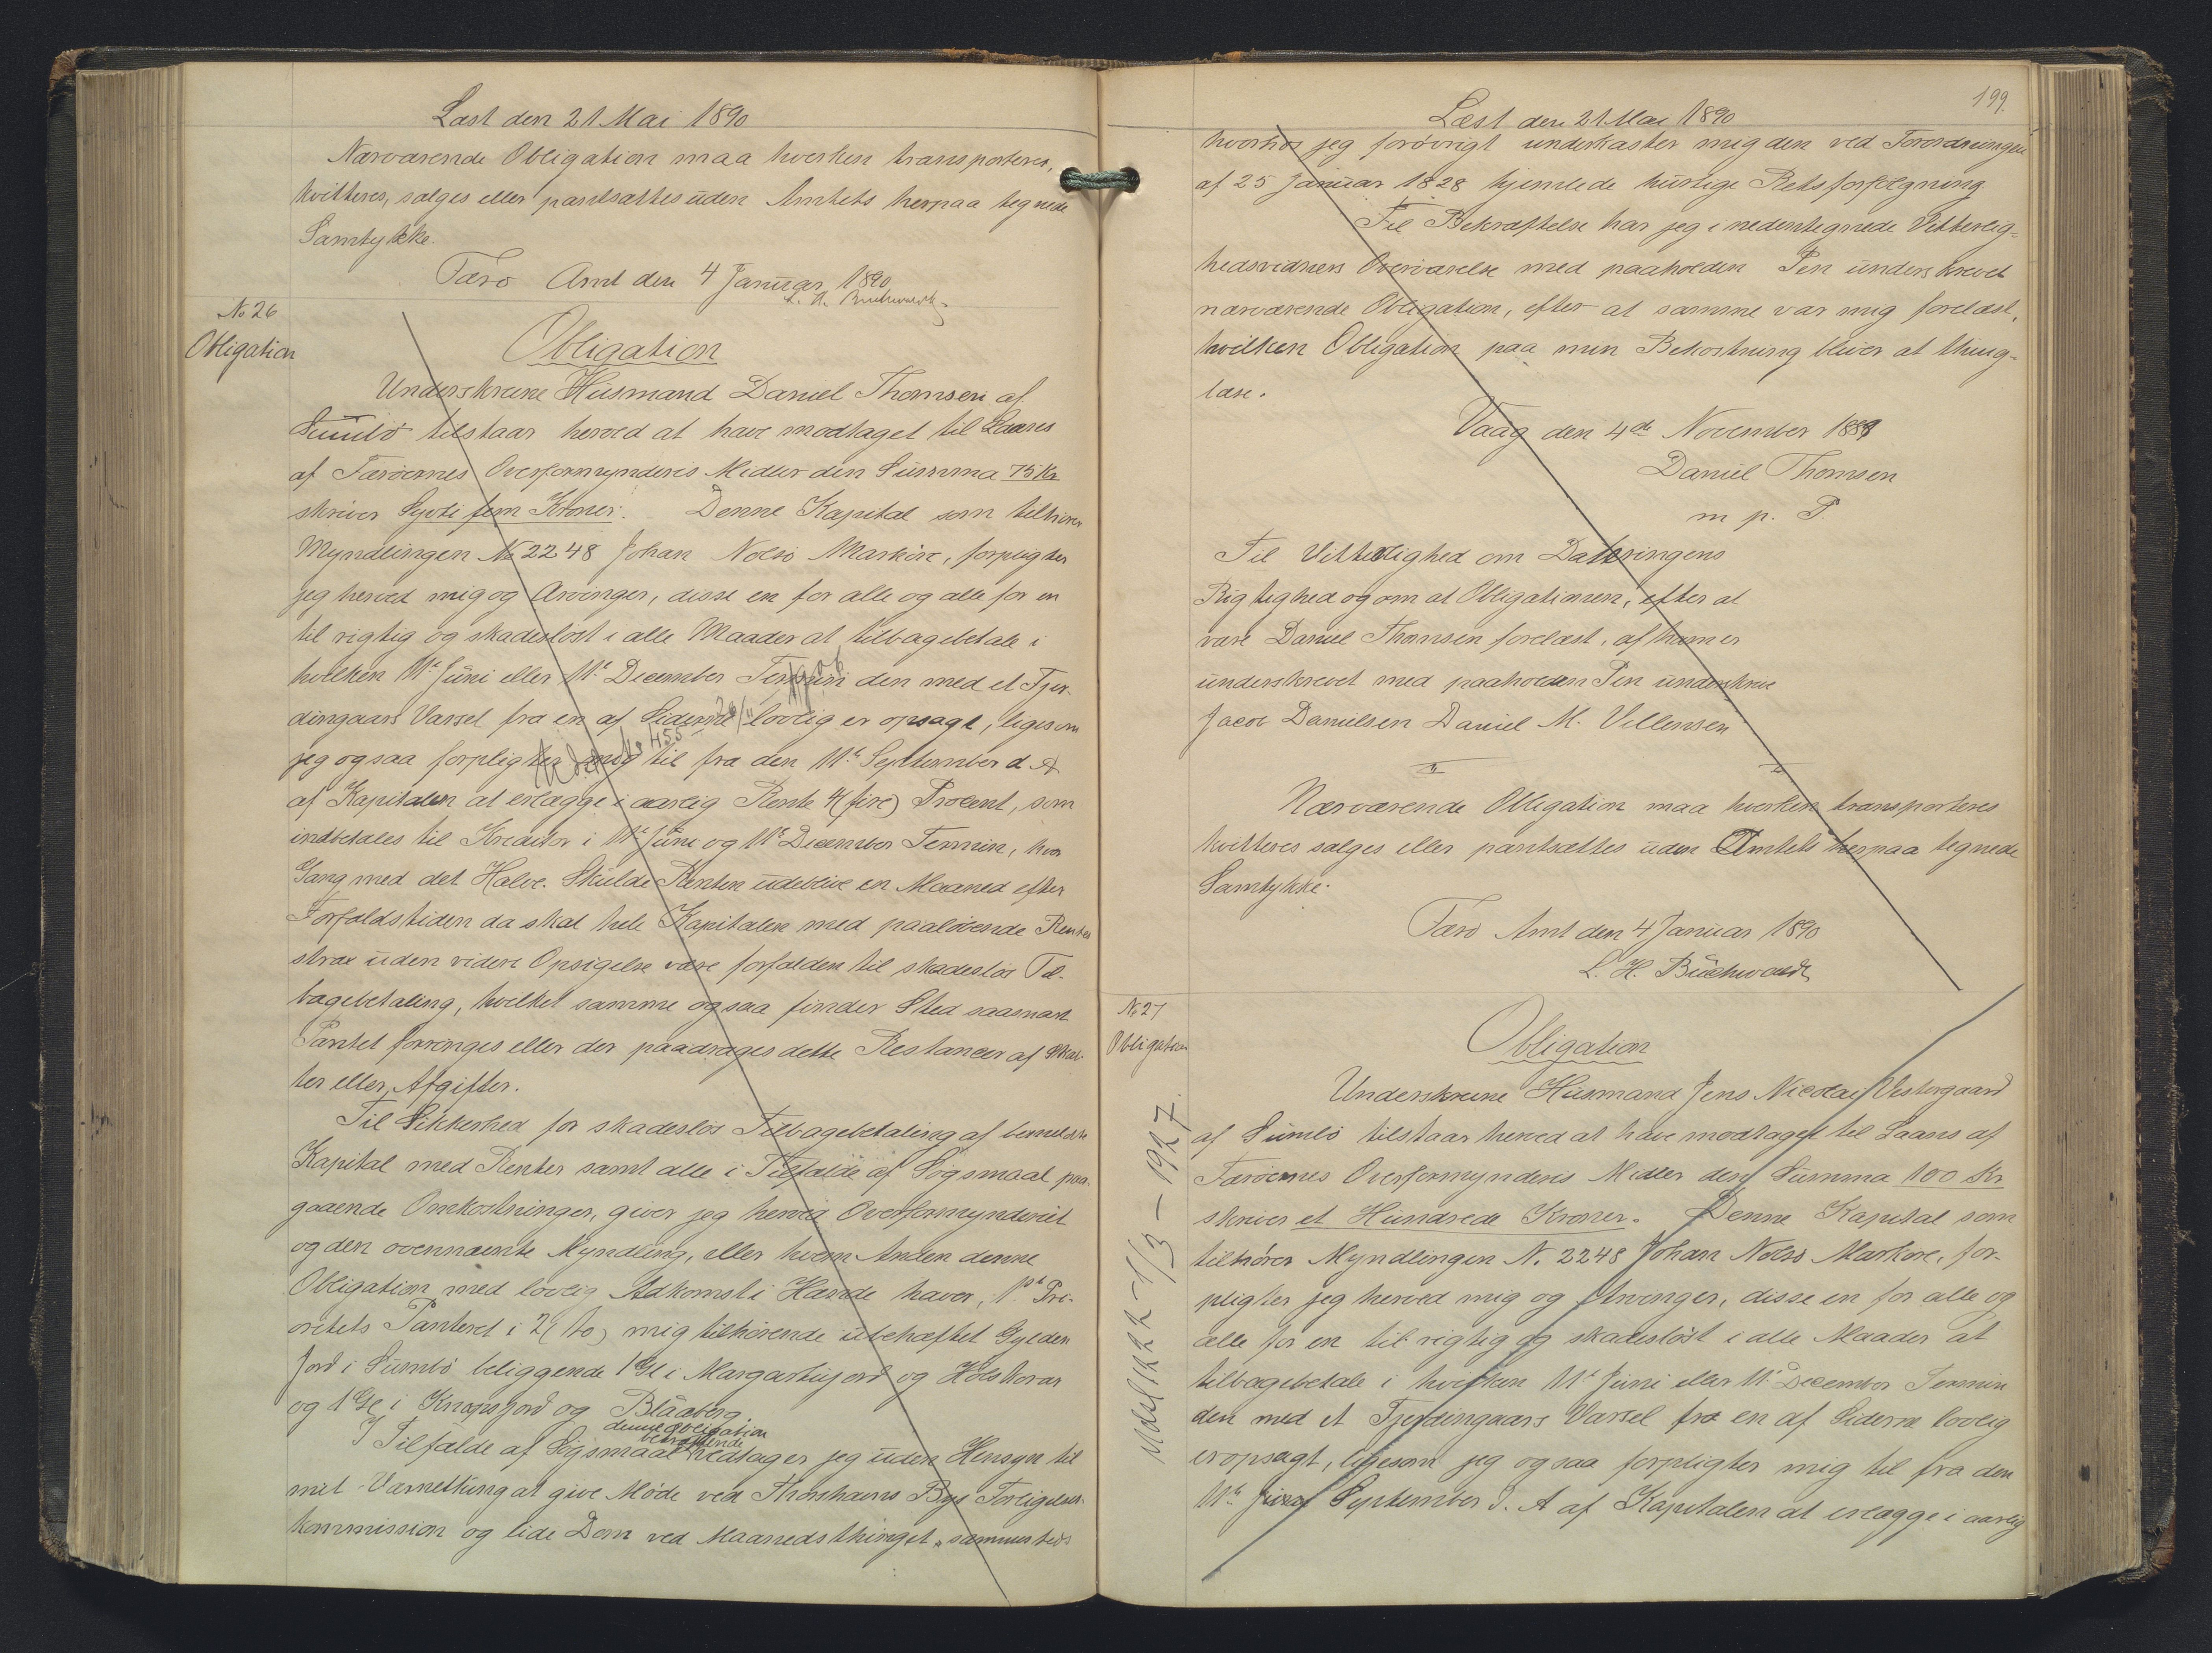 Læst den 21 Mai 1890
Nærværende Obligation maa hverken transporteres,
kvitteres, sælges eller pantsættes uden Amtets herpaa tegnede
Samtykke.
Færø Amt den 4 Januar 1890
L. H. Buchwaldt
No 26
Obligation
Obligation
Underskrevne Husmand Daniel Thomsen af
Sumbø tilstaar herved at have modtaget til Laans
af Færøernes Overformynderis Midler den Summa 75 Kr
skriver Syvti fem Kroner. Denne Kapital som tilhører
Myndlingen No 2248 Johan Nolsø Markøre, forpligter
jeg herved mig og Arvinger, disse en for alle og alle for en
til rigtig og skadesløst i alle Maader at tilbagebetale i
hvilken 11te Juni eller 11te December Termin den med et Fjer-
dingaars Varsel fra en af Siderne lovlig er opsagt, ligesom
jeg ogsaa forpligter mig til fra den 11te September d. A
af Kapitalen at erlægge i aarlig Rente 4 (fire) Procent, som
indbetales til Kreditor i 11te Juni og 11te December Termin, hver
Gang med det Halve. Skulde Renten udeblive en Maaned efter
Forfaldstiden da skal hele Kapitalen med paaløbende Renter
strax uden videre Opsigelse være forfalden til skadesløs Til-
bagebetaling, hvilket samme ogsaa finder Sted saasnart
Pantet forringes eller der paadrages dette Restancer af Skat-
ter eller Afgifter.
Til Sikkerhed for skadesløs Tilbagebetaling af bemeldte
Kapital med Renter samt alle i Tilfælde af Søgsmaal paa-
gaaende Omkostninger, giver jeg herved Overformynderiet
og den ovennævnte Myndling, eller hvem Anden denne
Obligation med lovlig Adkomst i Hænde haver, 1ste Pri-
oritets Panteret i 2 (to) mig tilhørende ubehæftet Gylden
Jord i Sumbø beliggende 1 Gl i Margartujord og Holskorar
og 1 Gl i Knapsjord og Blaaberg
denne Obligation
betræffende
I Tilfælde af Søgsmaal vedtager jeg uden Hensyn til
mit Værnething at give Møde ved Thorshavns Byes Forligelses-
kommission og lide Dom ved Maanedsthinget sammesteds
199.
Læst den 21 Mai 1890
hvorhos jeg forøvrigt underkaster mig den ved Forordningen
af 25 Januar 1828 hjemlede hurtige Retsforfølgning
Til Bekræftelse har jeg i nedentegnede Vitterlig-
hedsvidners Overværelse med paaholden Pen underskrevet
nærværende Obligation, efter at samme var mig forelæst,
hvilken Obligation paa min Bekostning bliver at thing-
læse.
Vaag den 4de November 1889
Daniel Thomsen
m. p. P.
Til Vitterlighed om Dateringens
Rigtighed og om at Obligationen, efter at
være Daniel Thomsen forelæst, af ham er
underskrevet med paaholden Pen underskrive
Jacob Danielsen Daniel M. Villemsen
Nærværende Obligation maa hverken transporteres
kvitteres sælges eller pantsættes uden Amtets herpaa tegnede
Samtykke.
Færø Amt den 4 Januar 1890
L. H. Buchwaldt
No 27
Obligation
Obligation
Underskrevne Husmand Jens Nicolai Vestergaard
af Sumbø tilstaar herved at have modtaget til Laans af
Færøernes Overformynderis Midler den Summa 100 Kr
skriver et Hundrede Kroner. Denne Kapital som
tilhører Myndlingen N. 2248 Johan Nolsø Markøre, for-
pligter jeg herved mig og Arvinger, disse en for alle og
alle for en til rigtig og skadesløst i alle Maader at
tilbagebetale i hvilken 11te Juni eller 11te December Termin
den med et Fjerdingaars Varsel fra en af Siderne lovlig
er opsagt, ligesom jeg ogsaa forpligter mig til fra den
11te September d. A af Kapitalen at erlægge i aarlig
1/3 - 1927.